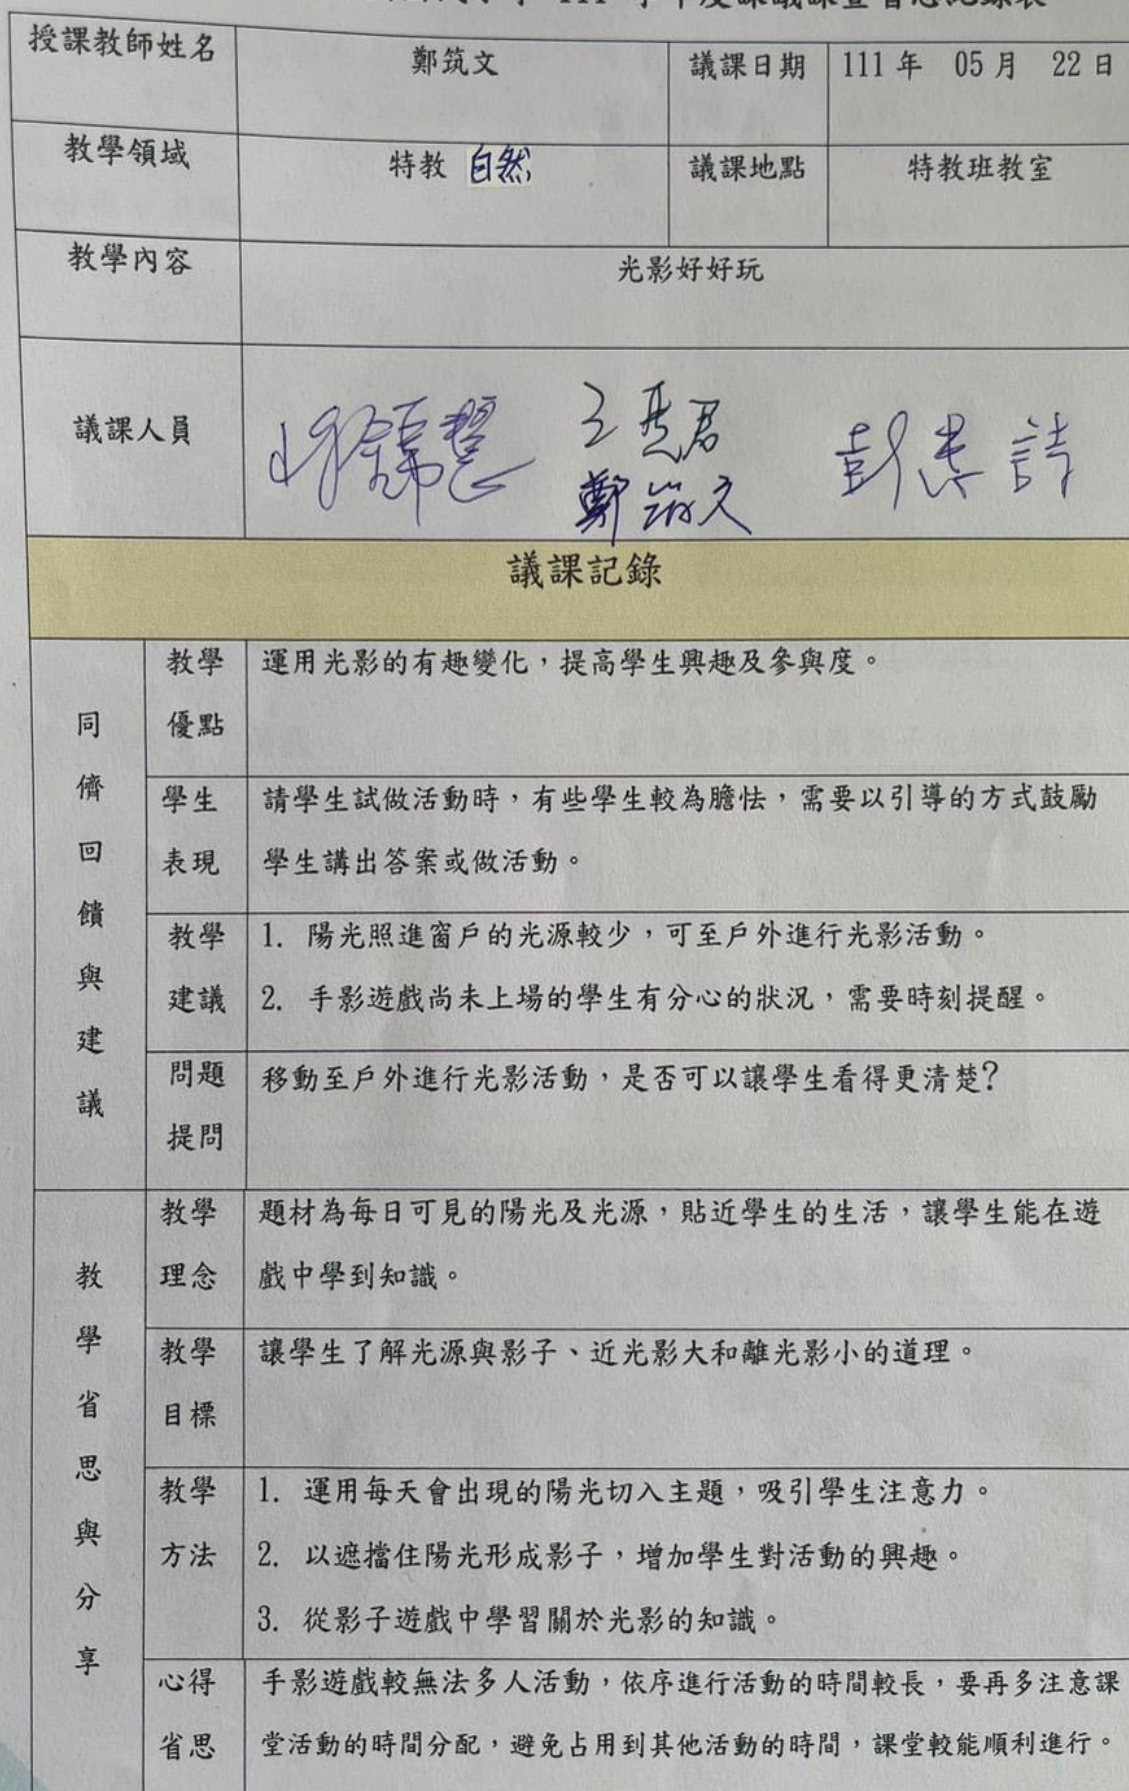 111 學年度課議課暨省思紀錄表
授課教師姓名
鄭筑文
議課日期
111 年 05 月 22 日
教學領域
特教 自然
議課地點
特教班教室
教學內容
光影好好玩
議課人員
鄭筑文
議課記錄
同儕回饋與建議
教學
優點
運用光影的有趣變化，提高學生興趣及參與度。
學生
表現
請學生試做活動時，有些學生較為膽怯，需要以引導的方式鼓勵
學生講出答案或做活動。
教學
建議
1. 陽光照進窗戶的光源較少，可至戶外進行光影活動。
2. 手影遊戲尚未上場的學生有分心的狀況，需要時刻提醒。
問題
提問
移動至戶外進行光影活動，是否可以讓學生看得更清楚?
教學省思與分享
教學
理念
題材為每日可見的陽光及光源，貼近學生的生活，讓學生能在遊
戲中學到知識。
教學
目標
讓學生了解光源與影子、近光影大和離光影小的道理。
教學
方法
1. 運用每天會出現的陽光切入主題，吸引學生注意力。
2. 以遮擋住陽光形成影子，增加學生對活動的興趣。
3. 從影子遊戲中學習關於光影的知識。
心得
省思
手影遊戲較無法多人活動，依序進行活動的時間較長，要再多注意課
堂活動的時間分配，避免占用到其他活動的時間，課堂較能順利進行。